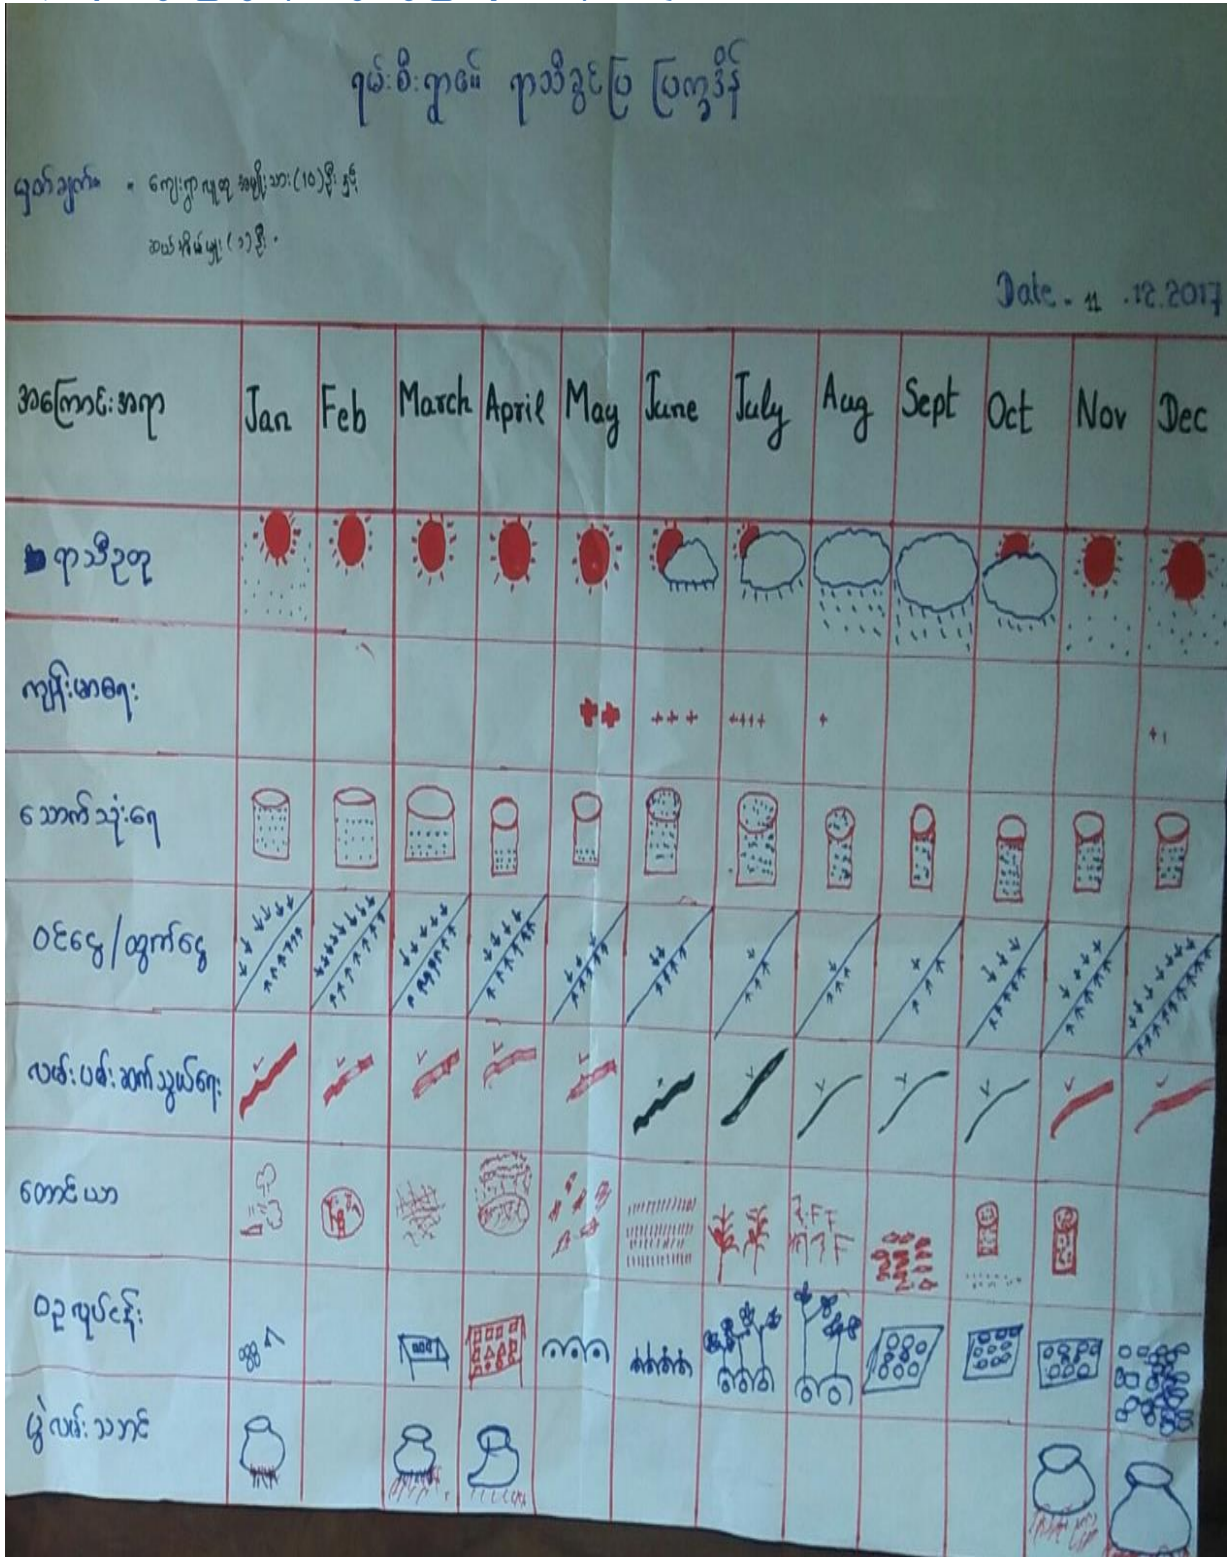 ရာသီခွင်ပြ ပြက္ခဒိန်
မှတ်ချက်။ - ကျေးရွာလူထု အမျိုးသား(၁၀)ဦးနှင့်
(၁)ဦး။
Date - 11 .12.2017
အကြောင်းအရာ Jan Feb March April May June July Aug Sept Oct Nov Dec
ရာသီဥတု
ကျန်းမာရေး
သောက်သုံးရေ
ဝင်ငွေ/ထွက်ငွေ
လမ်းပမ်းဆက်သွယ်ရေး
တောင်ယာ
ဝဥလုပ်ငန်း
ပွဲလမ်းသဘင်